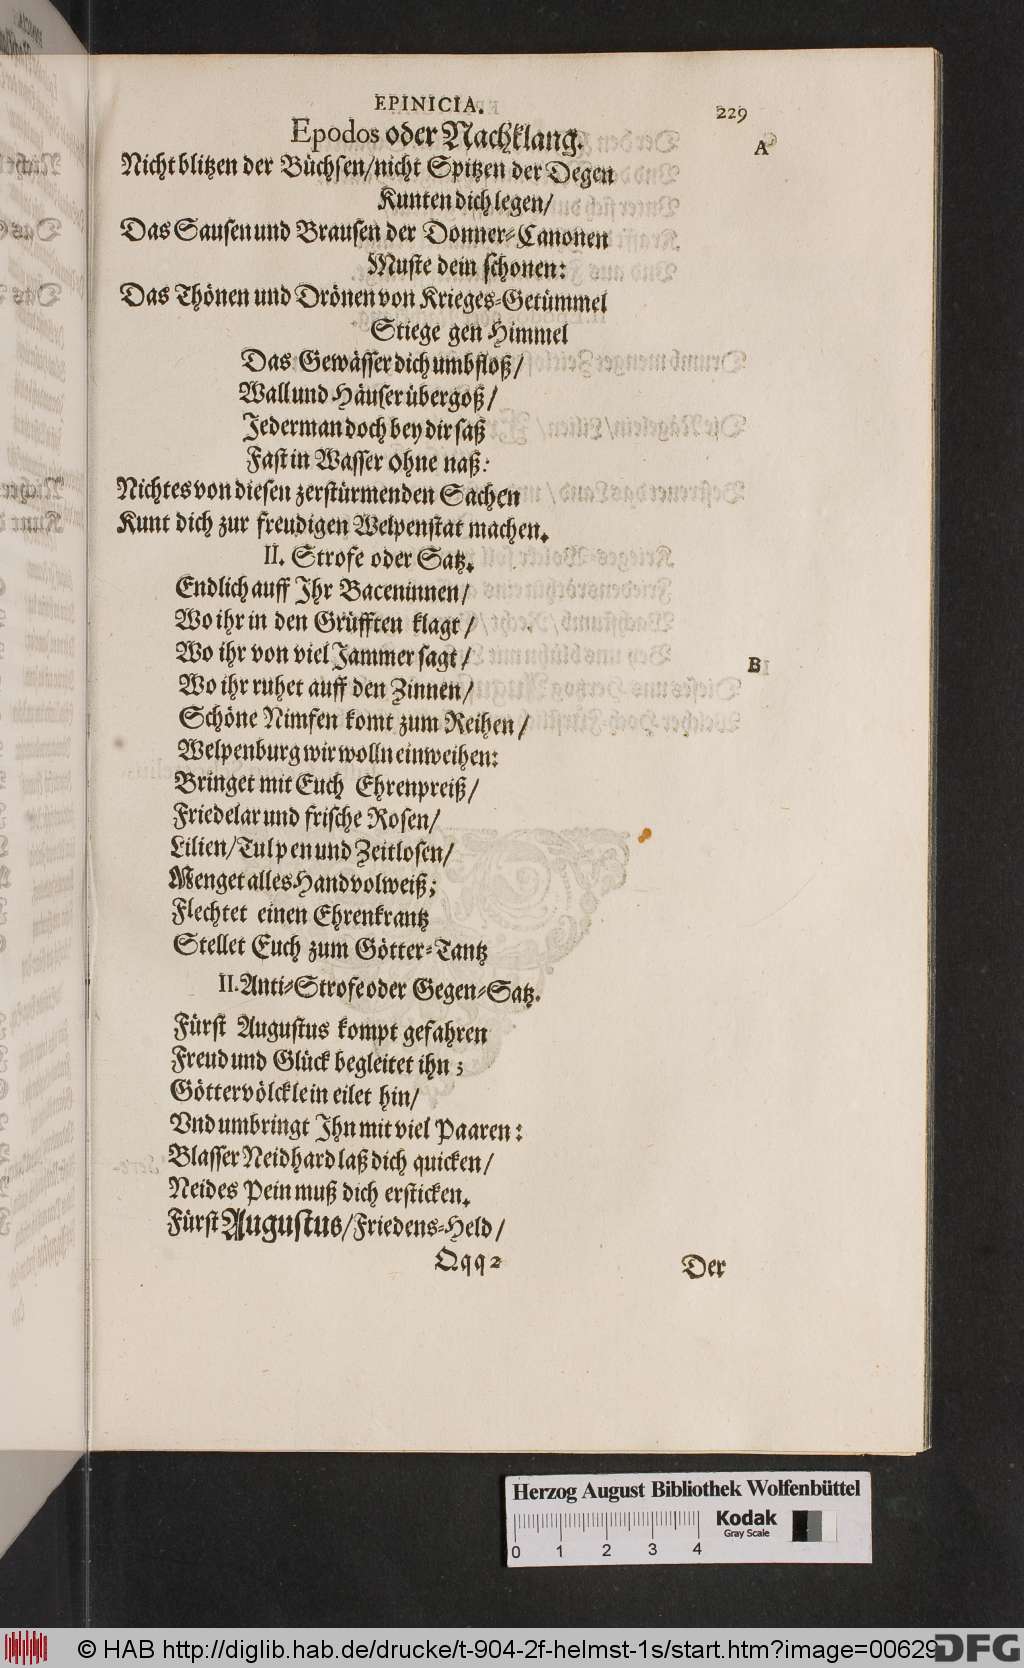 EPINICIA. 229
Epodos oder Nachklang.
A
Nicht blitzen der Büchsen/nicht Spitzen der Degen
Kunten dich legen/
Das Sausen und Brausen der Donner-Canonen
Muste dein schonen:
Das Thönen und Drönen von Krieges-Getümmel
Stiege gen Himmel
Das Gewässer dich umbfloß/
Wall und Häuser übergoß/
Jederman doch bey dir saß
Fast in Wasser ohne naß:
Nichtes von diesen zerstürmenden Sachen
Kunt dich zur freudigen Welpenstat machen.
II. Strofe oder Satz.
Endlich auff Ihr Baceninnen/
Wo ihr in den Grüfften klagt/
Wo ihr von viel Jammer sagt/
B
Wo ihr ruhet auff den Zinnen/
Schöne Nimfen komt zum Reihen/
Welpenburg wir wolln einweihen:
Bringet mit Euch Ehrenpreiß/
Friedelar und frische Rosen/
Lilien/Tulpen und Zeitlosen/
Menget alles Handvolweiß;
Flechtet einen Ehrenkrantz
Stellet Euch zum Götter-Tantz
II. Anti-Strofe oder Gegen-Satz.
Fürst Augustus kompt gefahren
Freud und Glück begleitet ihn;
Göttervölcklein eilet hin/
Vnd umbringt Ihn mit viel Paaren:
Blasser Neidhard laß dich quicken/
Neides Pein muß dich ersticken.
Fürst Augustus/Friedens-Held/
Qqq 2 Der
Herzog August Bibliothek Wolfenbüttel
Kodak
Gray Scale
0 1 2 3 4
© HAB http://diglib.hab.de/drucke/t-904-2f-helmst-1s/start.htm?image=00629
DFG